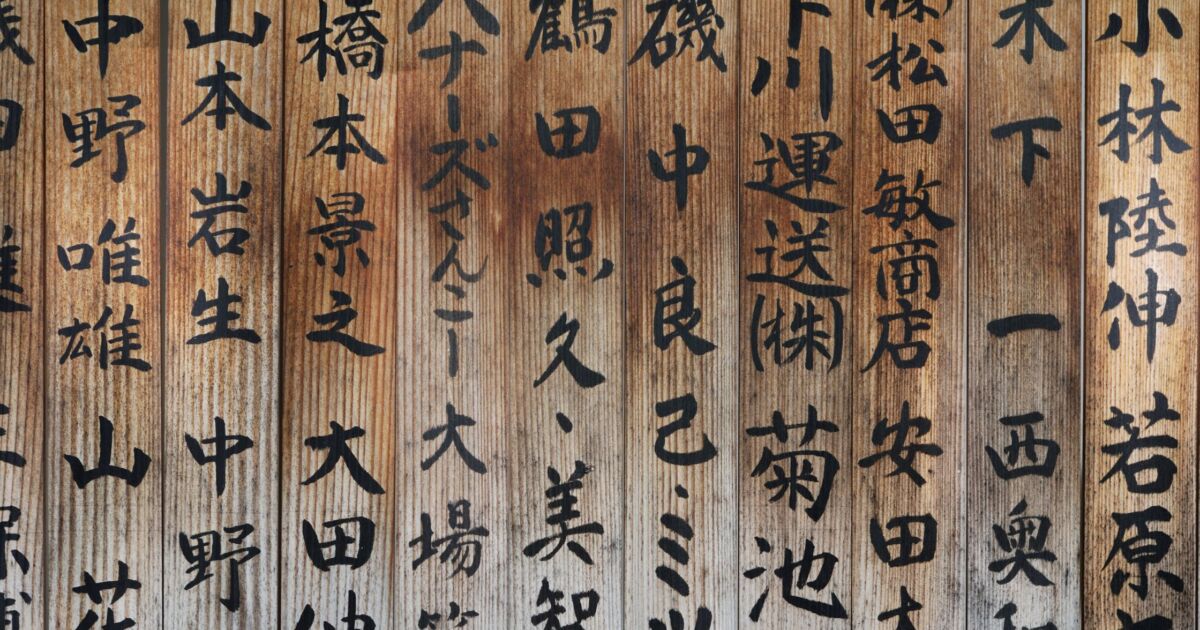 小林陸伸 若原
木下 一 西奥
(株)松田敏商店 安田
下川運送(株) 菊池
磯中良己、ミツ
鶴田照久、美智
ハナーズさんこー 大場
橋本景之 大田
山本岩生 中野
中野唯雄 山